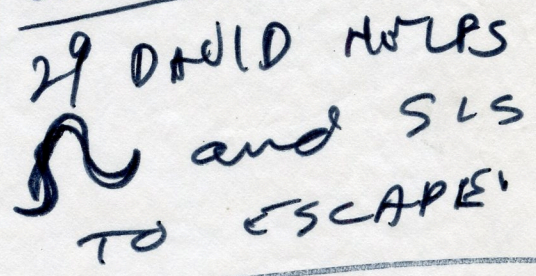 29 DAVID HELPS
and SLS
TO ESCAPE.